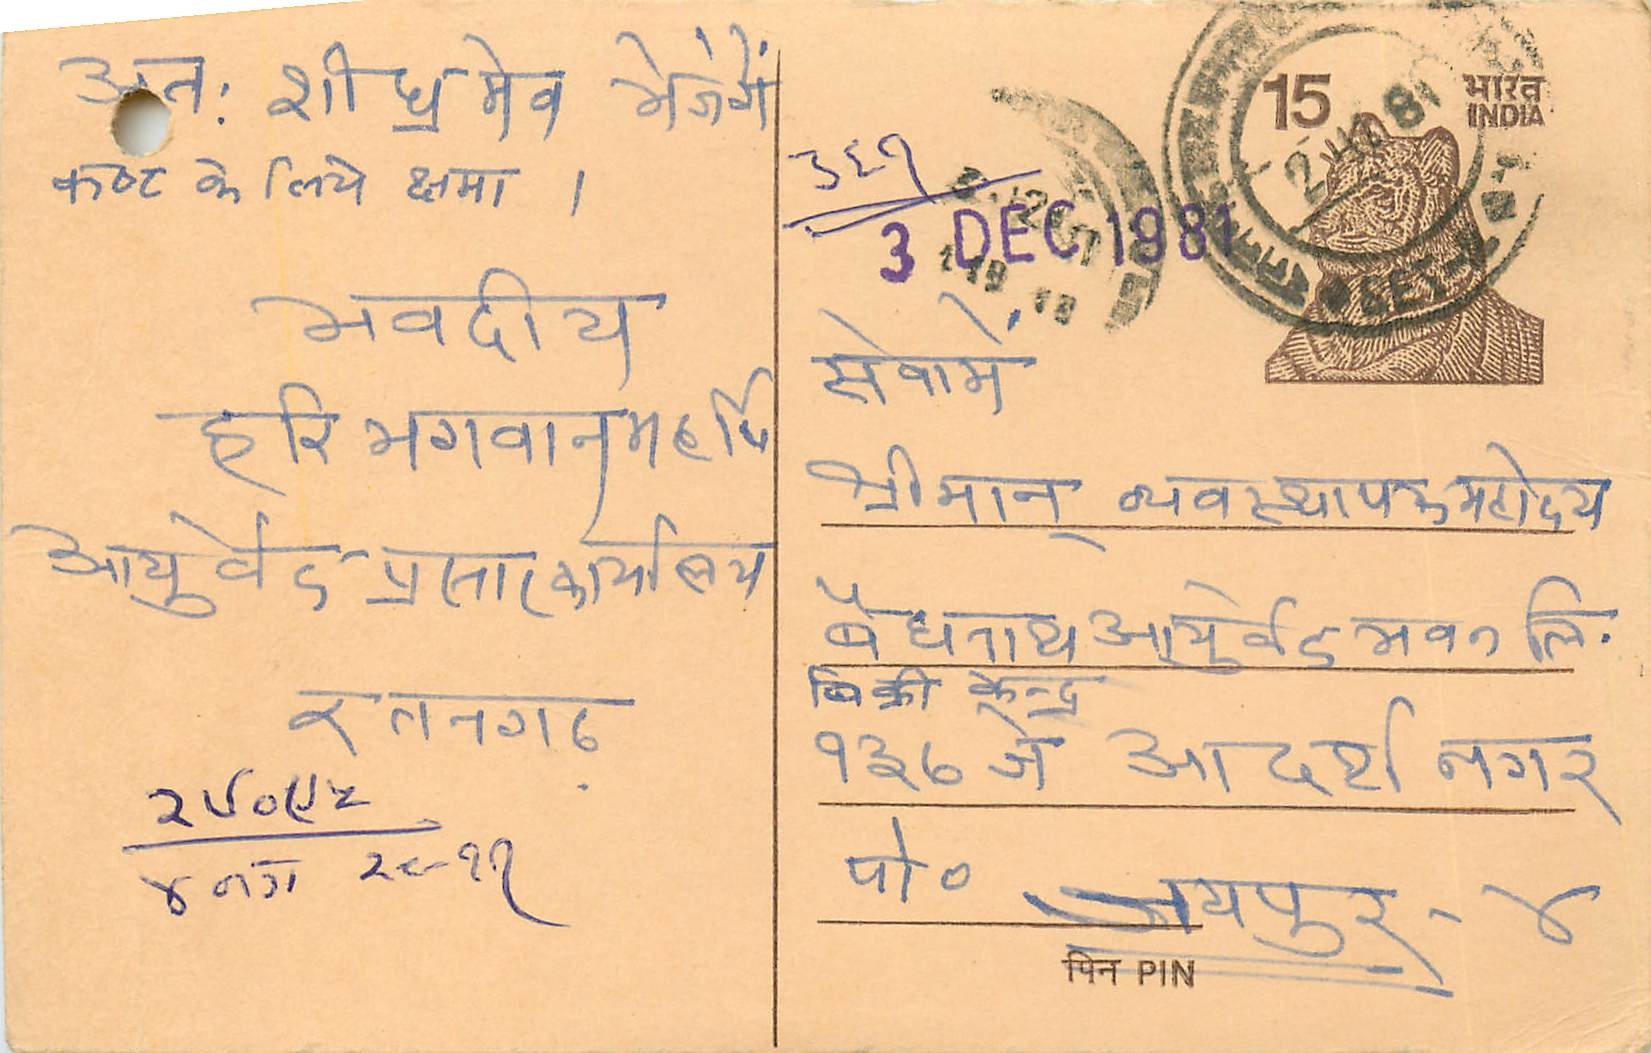 अतः शीघ्रमेव भेजेंगें
कष्ट के लिये क्षमा ।
भवदीय
हरि भगवान् महर्षि
आयुर्वेद प्रसार कार्यालय
रतनगढ़
४ नग २८-११
15 भारत
INDIA
३६१
3 DEC 1981
सेवामें
श्रीमान् व्यवस्थापक महोदय
बैद्यनाथ आयुर्वेद भवन लि.
बिक्री केन्द्र
१३६ जे आदर्श नगर
पो० जयपुर - ४
पिन PIN